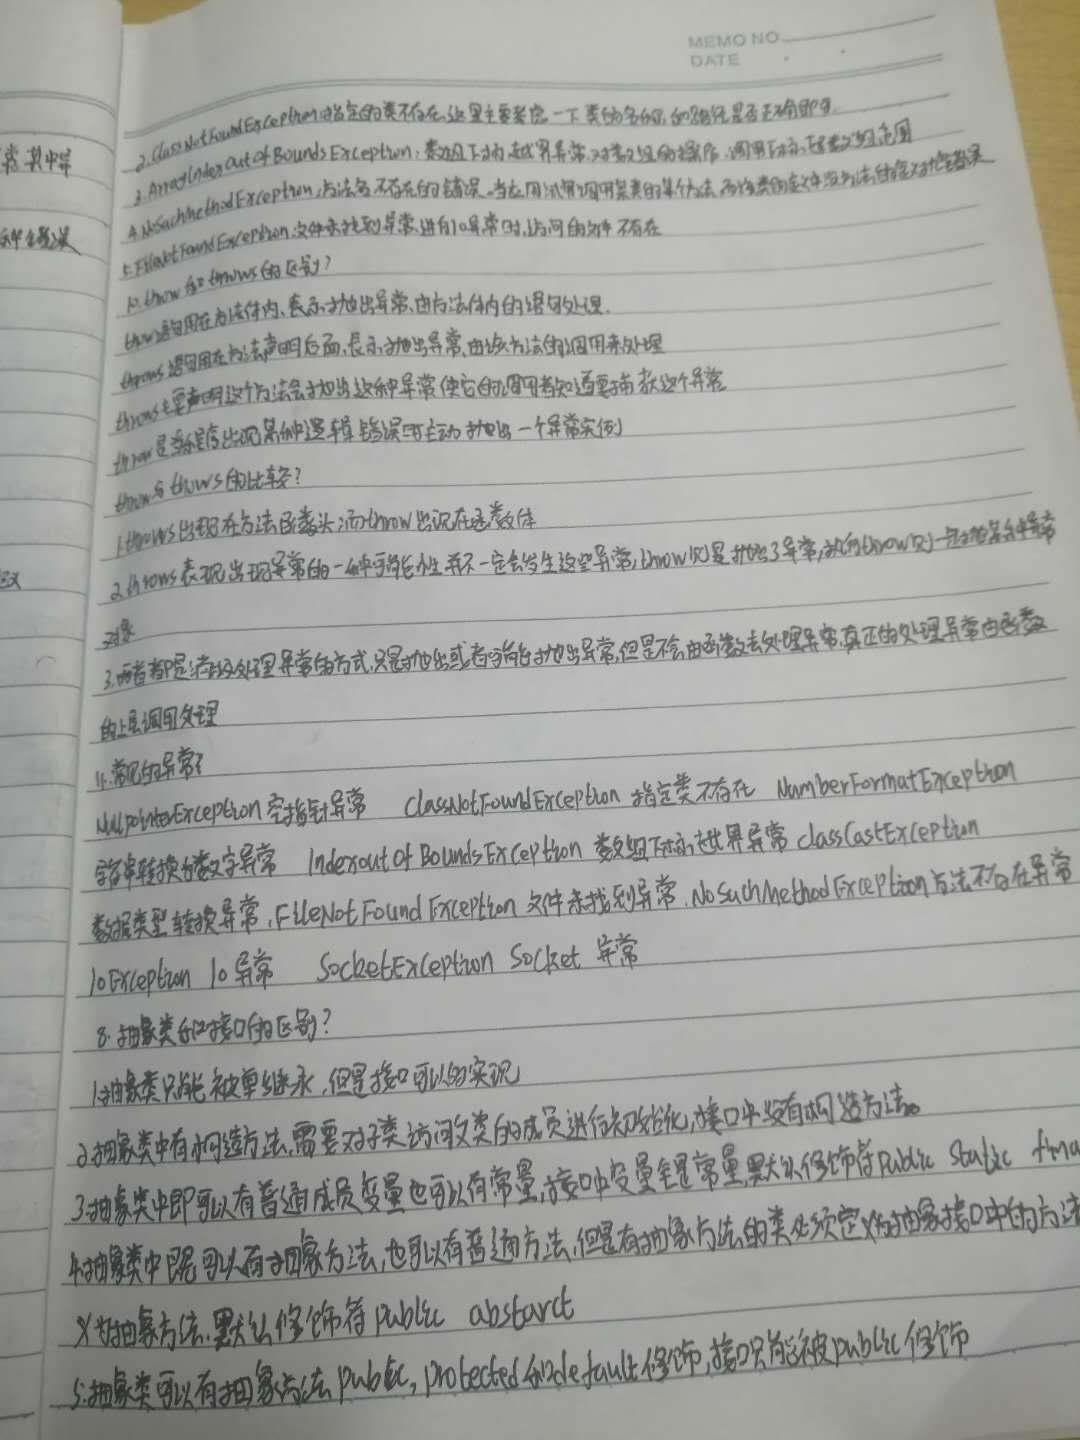 MEMO NO
DATE
2.ClassNotFoundException:指定的类不存在,这里主要考虑一下类的名称,和路径是否正确即可
3.ArrayIndexOutOfBoundsException:数组下标越界异常,对数组的操作,调用下标,超数组范围
4.NoSuchMethodException,方法名不存在的错误,当应用试图调用某类的某个方法,而该类的定义中没有方法的定义抛出错误
5.FileNotFoundException:文件未找到异常,进行IO异常时,访问的文件不存在
10.throw和throws的区别?
throw语句用在方法体内,表示抛出异常,由方法体内的语句处理.
throws语句用在方法声明后面,表示抛出异常,由该方法的调用来处理
throws主要声明这个方法会抛出这种异常,使它的调用者知道要捕获这个异常
throw是当程序出现某种逻辑错误时主动抛出一个异常实例
throw与throws的比较?
1.throws出现在方法函数头;而throw出现在函数体
2.throws表现出现异常的一种可能性并不一定会发生这些异常,throw则是抛出了异常,执行throw则一定抛某种异常
对象
3.两者都是消极处理异常的方式,只是抛出或者可能抛出异常,但是不会由函数去处理异常,真正的处理异常由函数
的上层调用处理
11.常见的异常?
NullpointerException空指针异常 ClassNotFoundException 指定类不存在 NumberFormatException
字符串转换为数字异常 IndexOutOfBoundsException 数组下标越界异常 ClassCastException
数据类型转换异常,FileNotFoundException 文件未找到异常.NoSuchMethodException方法不存在异常
IoException Io异常 SocketException Socket 异常
8.抽象类和接口的区别?
1.抽象类只能被单继承,但是接口可以的实现
2.抽象类中有构造方法,需要对子类访问父类的成员进行初始化,接口中没有构造方法。
3.抽象类中即可以有普通成员变量也可以有常量,接口中变量全是常量,默认修饰符public static fina
4.抽象类中既可以有抽象方法,也可以有普通方法,但是有抽象方法的类必须定义为抽象接口中的方法
义为抽象方法.默认修饰符public abstarct
5.抽象类可以有抽象方法public,protected和default修饰,接口只能被public修饰